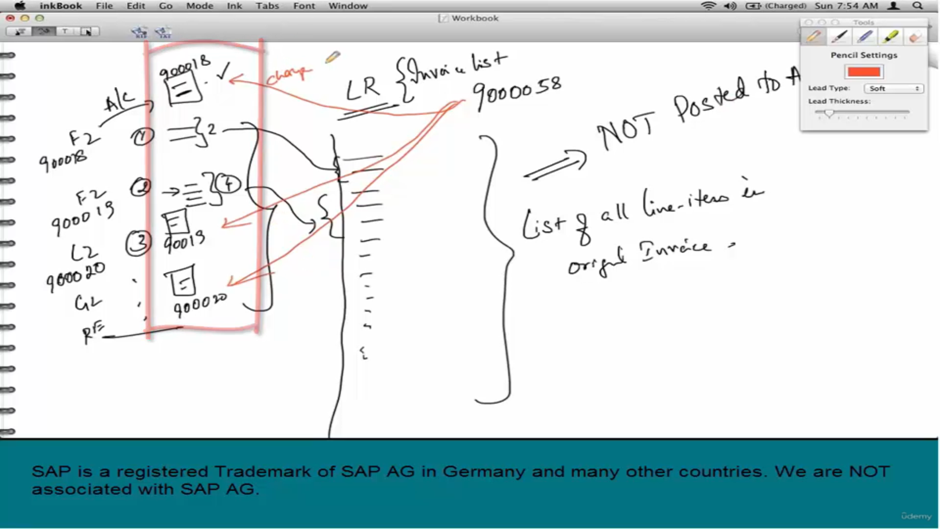 inkBook File Edit Go Mode Ink Tabs Font Window (Charged) Sun 7:54 AM
Workbook
Tools
Pencil Settings
Lead Type: Soft
Lead Thickness:
900018
change
LR { Invoice list
9000058
NOT Posted to A
A/C
F2
900018
1 2
F2
900019
2 4
L2
900020
3 90019
G2
900020
RE
List of all line-items in
original Invoice.
SAP is a registered Trademark of SAP AG in Germany and many other countries. We are NOT
associated with SAP AG.
ûdemy